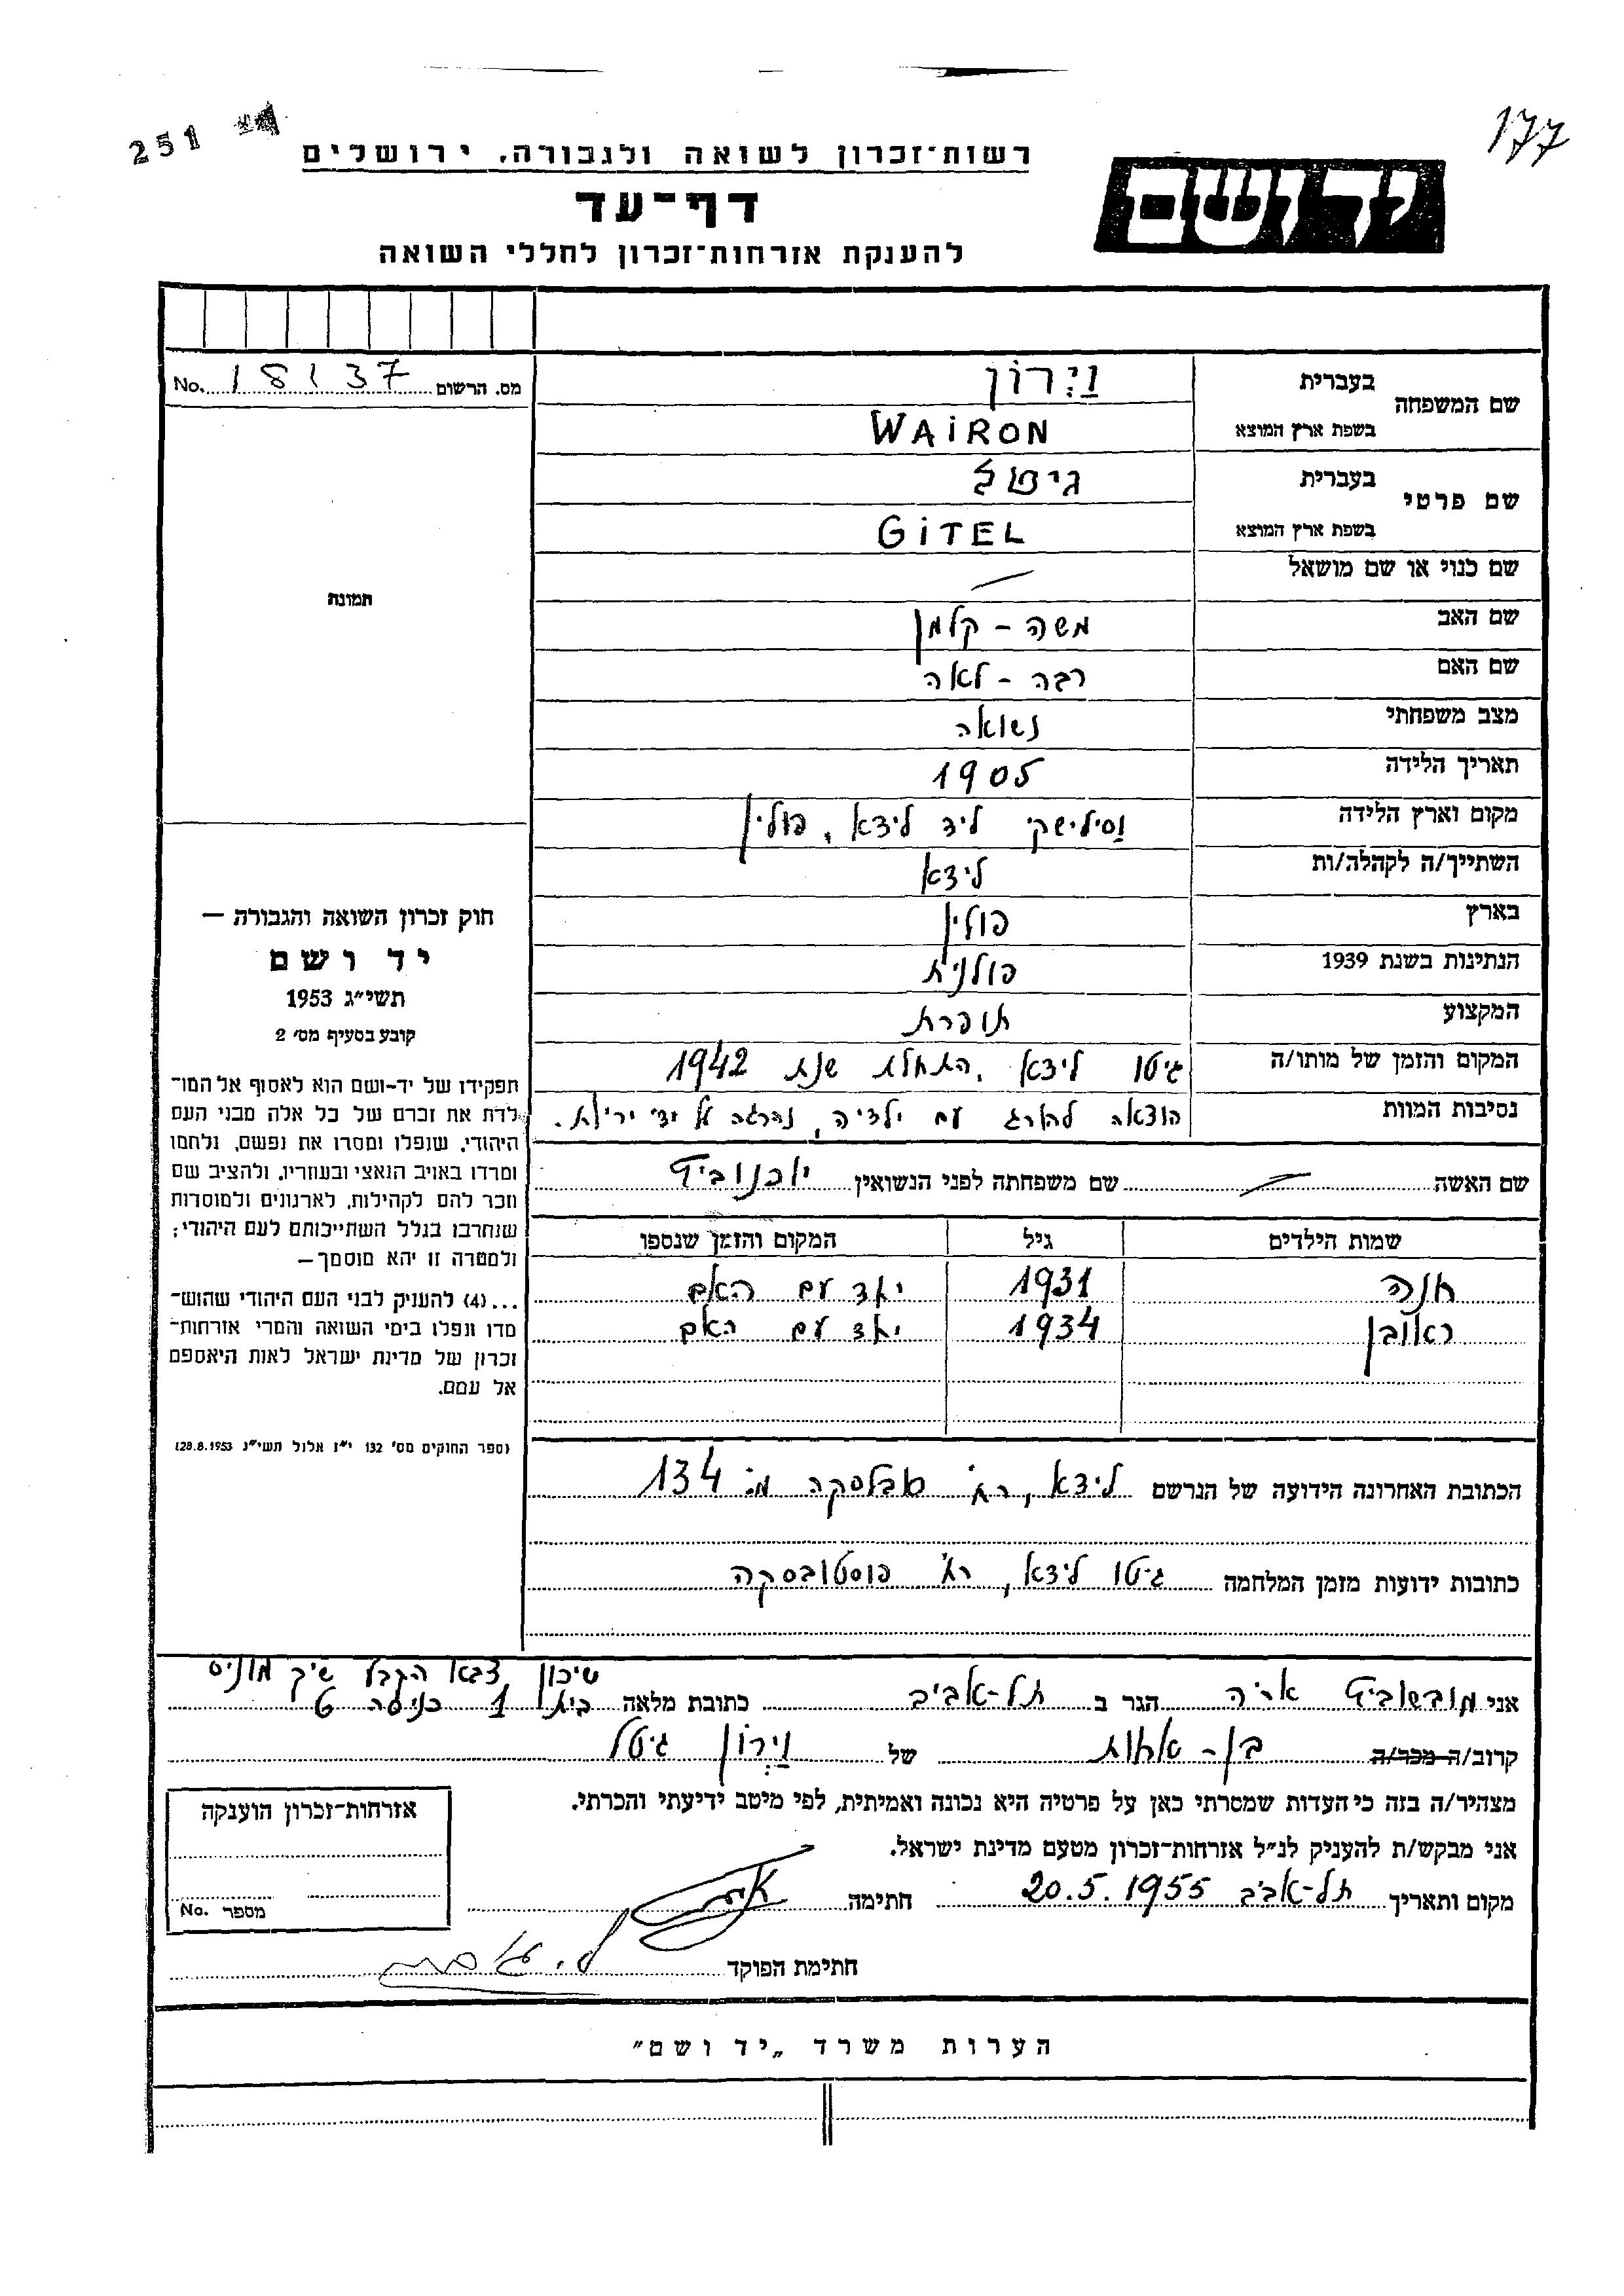 251
177
רשות־זכרון לשואה ולגבורה, ירושלים
יד ושם
דף־עד
להענקת אזרחות־זכרון לחללי השואה
מס. הרשום No. 18137
תמונה
חוק זכרון השואה והגבורה —
יד ושם
תשי״ג 1953
קובע בסעיף מס׳ 2
תפקידו של יד-ושם הוא לאסוף אל המו־
לדת את זכרם של כל אלה מבני העם
היהודי, שנפלו ומסרו את נפשם, נלחמו
ומרדו באויב הנאצי ובעוזריו, ולהציב שם
וזכר להם לקהילות, לארגונים ולמוסדות
שנחרבו בגלל השתייכותם לעם היהודי;
ולמטרה זו יהא מוסמך —
...(4) להעניק לבני העם היהודי שהוש־
מדו ונפלו בימי השואה והמרי אזרחות־
זכרון של מדינת ישראל לאות היאספם
אל עמם.
(ספר החוקים מס׳ 132 י״ז אלול תשי״ג 28.8.1953)
שם המשפחה
בעברית וַיְרוֹן
בשפת ארץ המוצא WAiRON
שם פרטי
בעברית גיטל
בשפת ארץ המוצא GiTEL
שם כנוי או שם מושאל —
שם האב משה - קלמן
שם האם רבה - לאה
מצב משפחתי נשואה
תאריך הלידה 1905
מקום וארץ הלידה וַסילישקי ליד לידא, פולין
השתייך/ה לקהלה/ות לידא
בארץ פולין
הנתינות בשנת 1939 פולנית
המקצוע תופרת
המקום והזמן של מותו/ה גיטו לידא, התחלת שנת 1942
נסיבות המוות הוצאה להורג עם ילדיה, נהרגה ע"י יריות.
שם האשה — שם משפחתה לפני הנשואין
שמות הילדים גיל המקום והזמן שנספו
חנה 1931 יחד עם האם
ראובן 1934 יחד עם האם
הכתובת האחרונה הידועה של הנרשם לידא, רח׳ סבלסקה מ: 134
כתובות ידועות מזמן המלחמה גיטו לידא, רח׳ פוסטובסקה
שיכון צבא הקבע שיך מוניס
אני מובשוביץ אריה הגר ב תל-אביב כתובת מלאה בית 1 כניסה ט
קרוב/ה מכר/ה בן - אחות של וַיְרוֹן גיטל
מצהיר/ה בזה כי העדות שמסרתי כאן על פרטיה היא נכונה ואמיתית, לפי מיטב ידיעתי והכרתי.
אני מבקש/ת להעניק לנ״ל אזרחות־זכרון מטעם מדינת ישראל.
מקום ותאריך תל-אביב 20.5.1955 חתימה
חתימת הפוקד
אזרחות־זכרון הוענקה
מספר No.
הערות משרד „יד ושם״